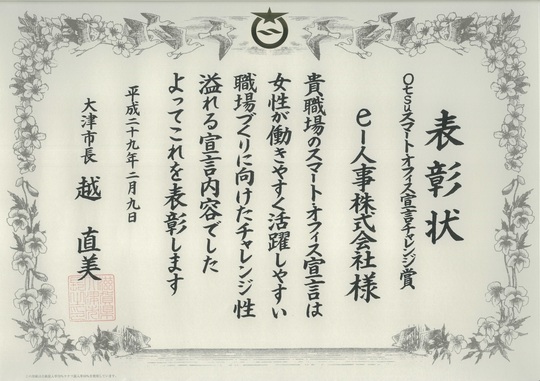 表彰状
Otsuスマートオフィス宣言チャレンジ賞
e-人事株式会社様
貴職場のスマートオフィス宣言は
女性が働きやすく活躍しやすい
職場づくりに向けたチャレンジ性
溢れる宣言内容でした
よってこれを表彰します
平成二十九年二月九日
大津市長 越 直美